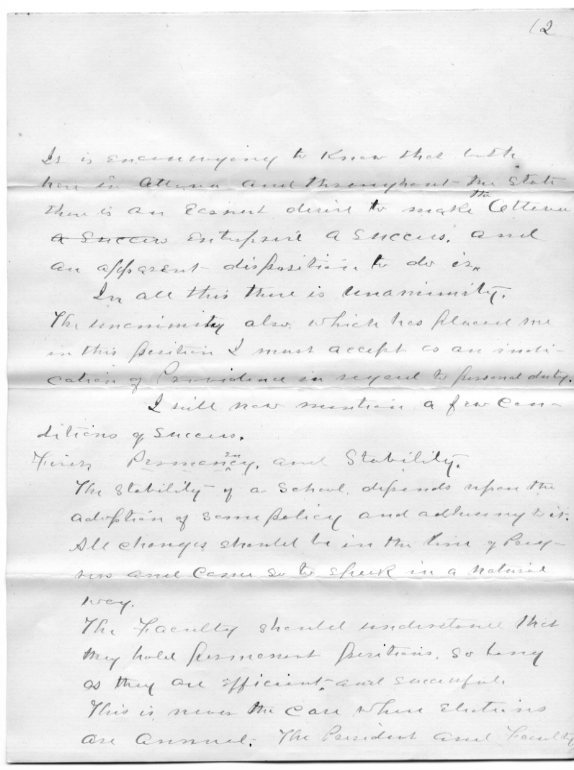 12
It is encouraging to know that both
here in Ottawa and throughout the State
there is an earnest desire to make the Ottawa
a Success enterprise a success, and
an apparent disposition to do it.
In all this there is unanimity.
The unanimity also which has placed me
in this position I must accept as an indi-
cation of Providence in regard to personal duty.
I will now mention a few con-
ditions of success.
First Permanency, and Stability.
The Stability of a School, depends upon the
adoption of some policy and adhering to it.
All changes should be in the line of Prog-
ress and come so to speak in a natural
way.
The Faculty should understand that
they hold permanent positions, so long
as they are efficient, and successful.
This is never the case where elections
are annual. The President and Faculty